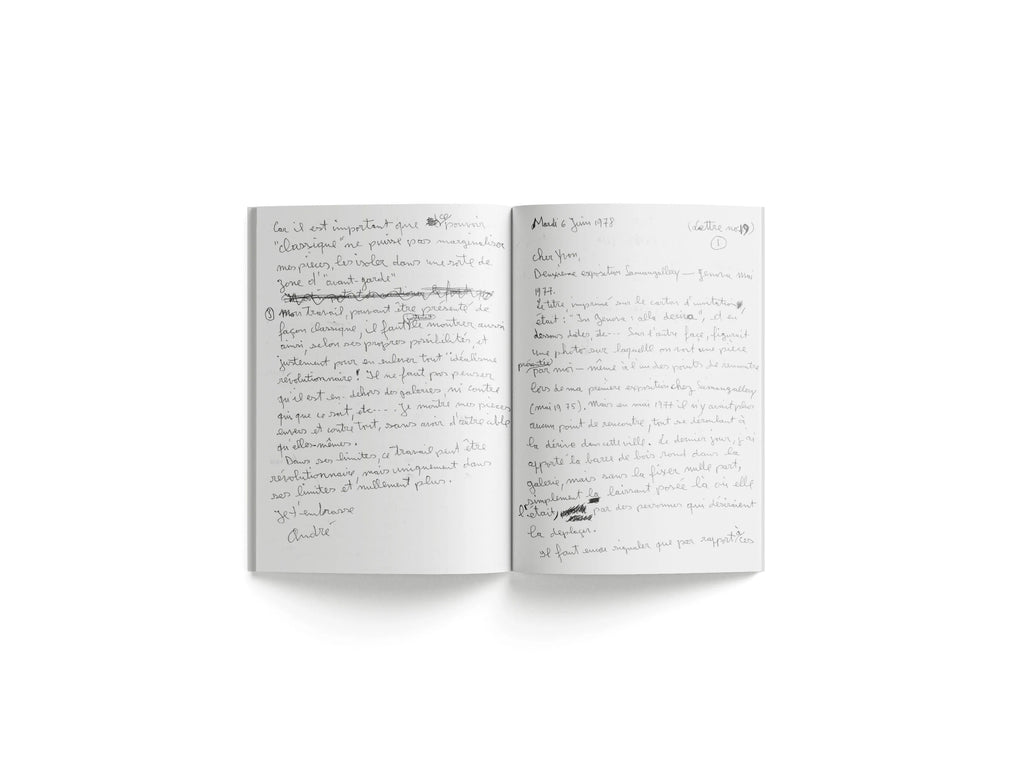 Car il est important que ce pouvoir
"classique" ne puisse pas marginaliser
mes pièces, les isoler dans une sorte de
zone d'"avant-garde"
③ Mon travail, pouvant être présenté de
façon classique, il faut le montrer aussi
ainsi, selon ses propres possibilités, et
justement pour en enlever tout "idéalisme
révolutionnaire". Il ne faut pas penser
qu'il est en dehors des galeries, ni contre
qui que ce soit, etc.... Je montre mes pièces
envers et contre tout, sans avoir d'autre cible
qu'elles-mêmes.
Dans ses limites, ce travail peut être
révolutionnaire, mais uniquement dans
ses limites et nullement plus.
Je t'embrasse
André
Mardi 6 Juin 1978 (Lettre no 19)
①
cher Yvon,
Deuxième exposition Samangallery — Genova mai
1977.
Le titre, imprimé sur le carton d'invitation,
était : "In Genova : alla deriva", et en
dessous Sur l'autre face, figurait
une photo sur laquelle on voit une pièce
présentée par moi-même à l'un des points de rencontre
lors de ma première exposition chez Samangallery
(mai 1975). Mais en mai 1977 il n'y avait plus
aucun point de rencontre, tout se déroulant à
la dérive dans cette ville. Le dernier jour, j'ai
apporté la barre de bois rond dans la
galerie, mais sans la fixer nulle part,
simplement la laissant posée là où elle
l'était, par des personnes qui désiraient
la déplacer.
Il faut encore signaler que par rapport à ces